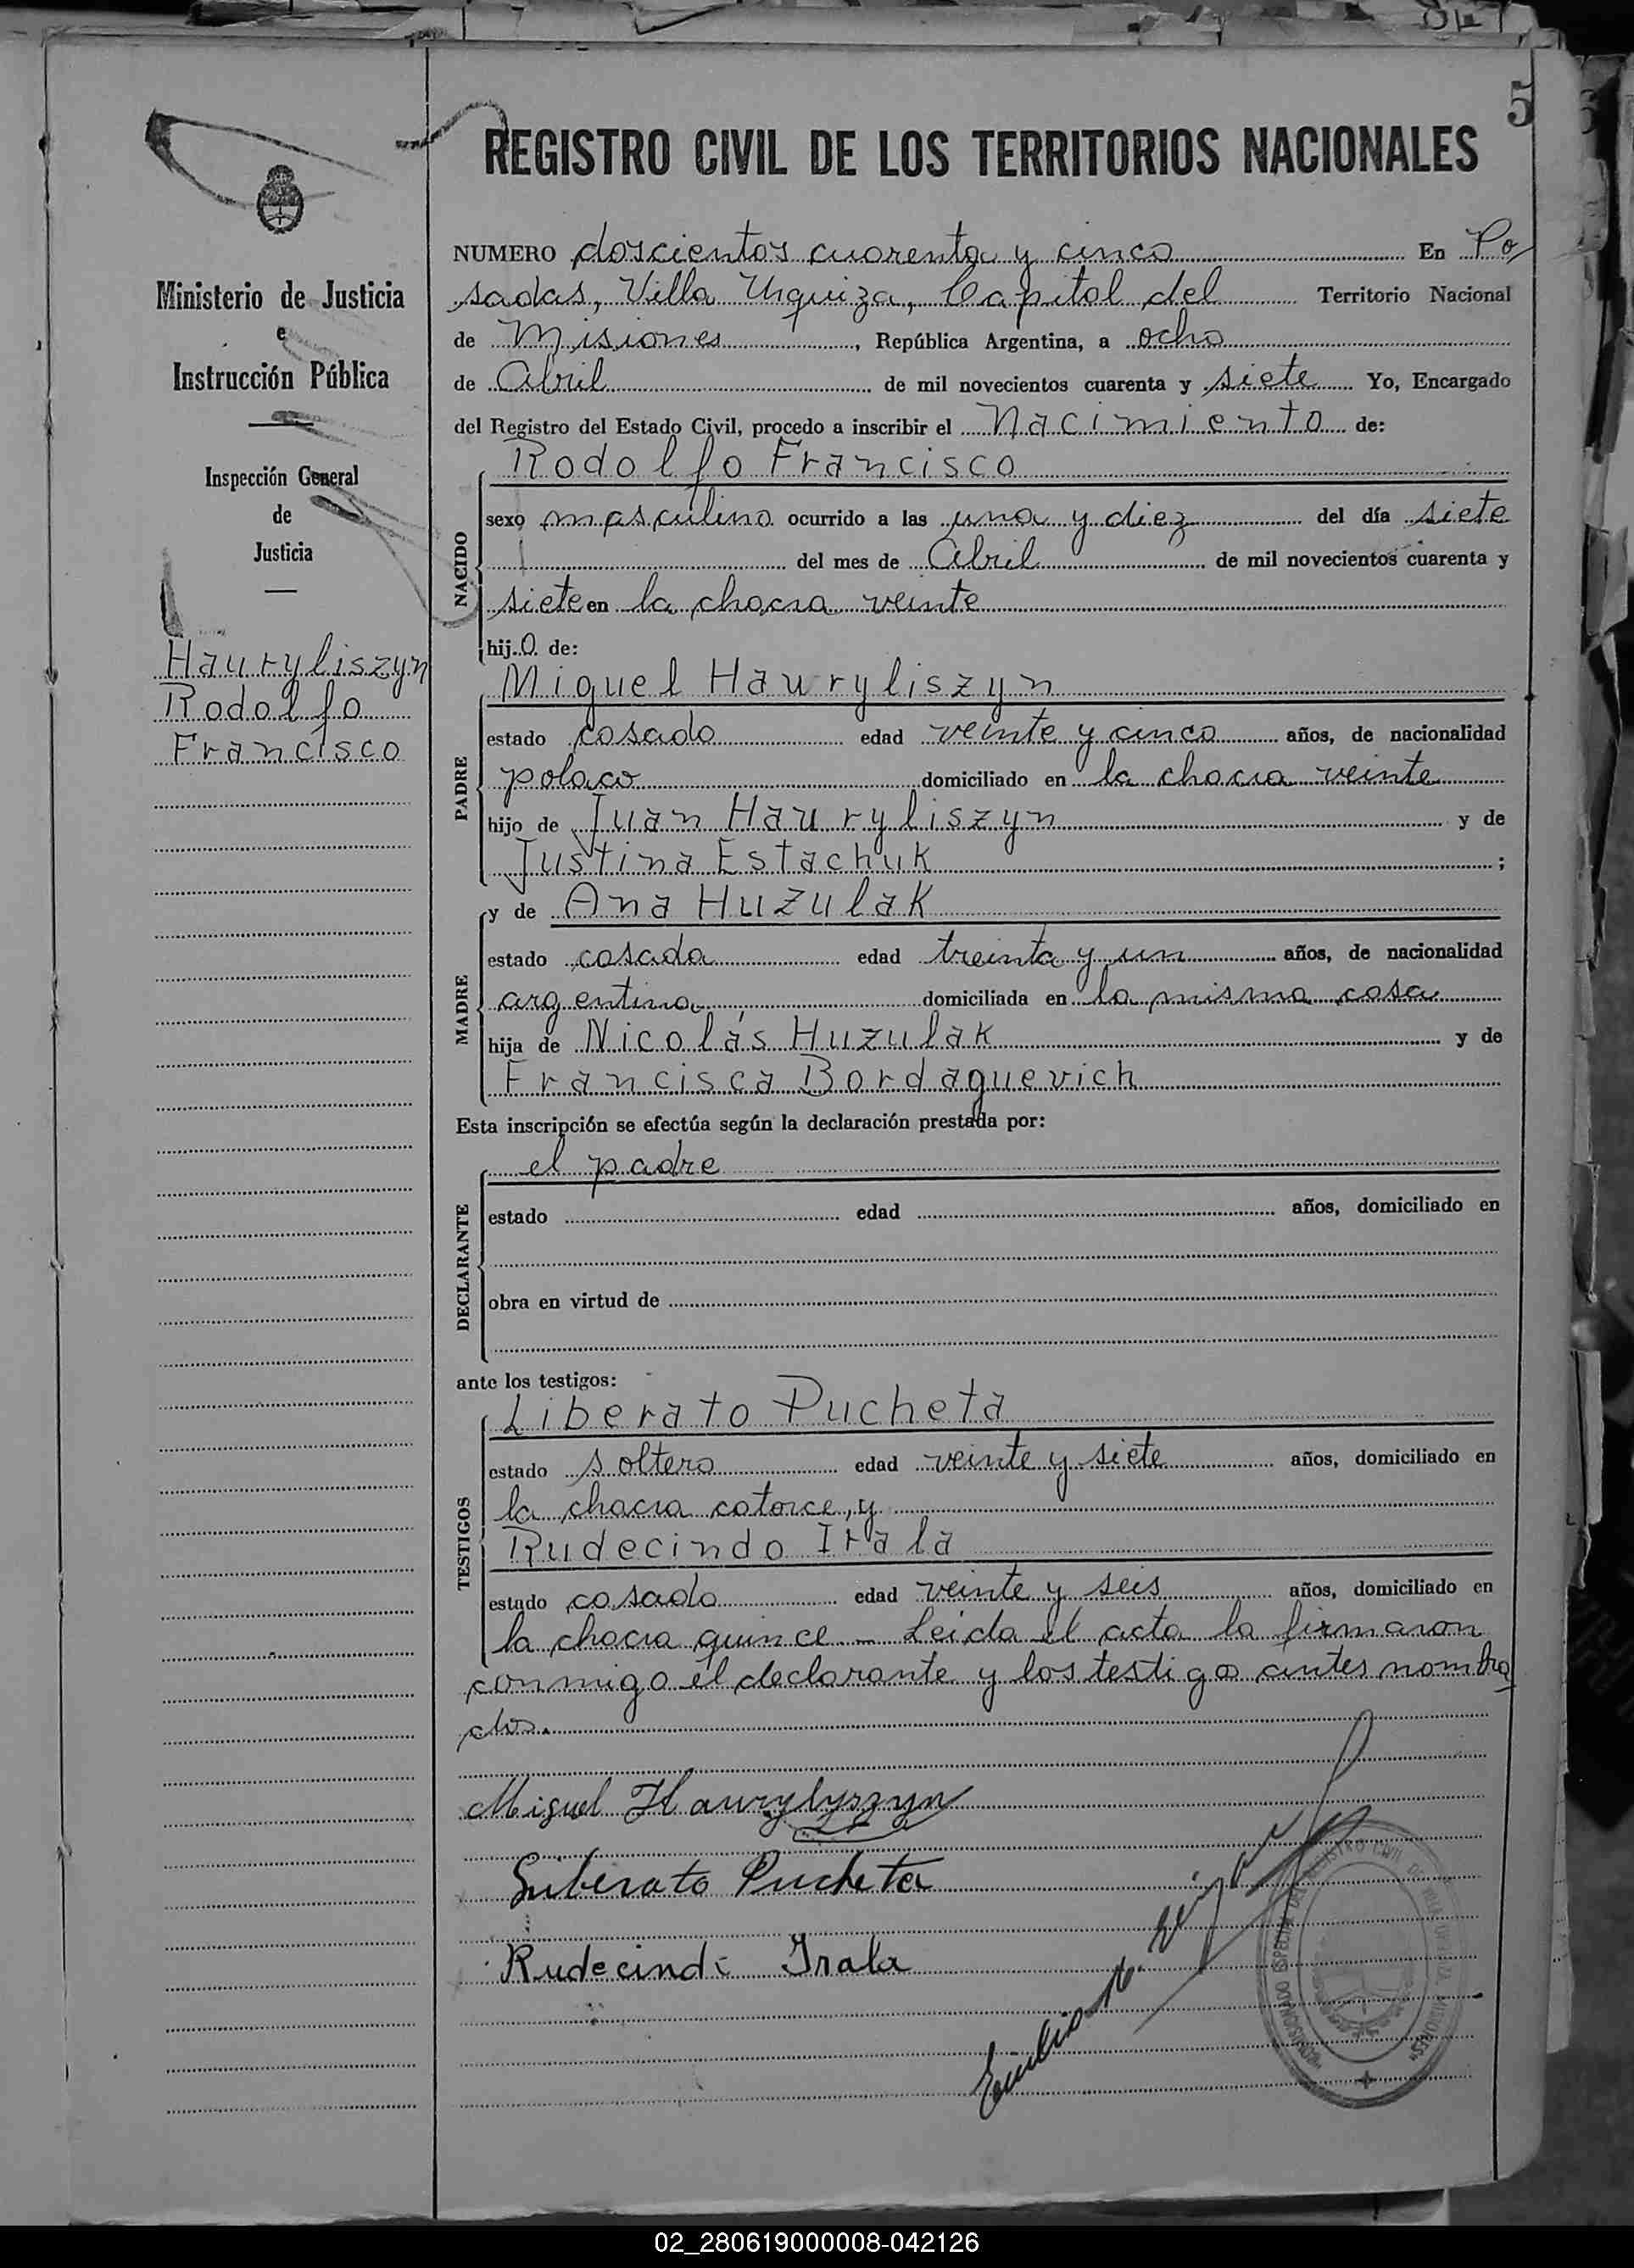 5
REGISTRO CIVIL DE LOS TERRITORIOS NACIONALES
Ministerio de Justicia
e
Instrucción Pública
Inspección General
de
Justicia
Hauryliszyn
Rodolfo
Francisco
NUMERO doscientos cuarenta y cinco En Po
sadas, Villa Urquiza, Capital del Territorio Nacional
de Misiones, República Argentina, a ocho
de Abril de mil novecientos cuarenta y siete Yo, Encargado
del Registro del Estado Civil, procedo a inscribir el Nacimiento de:
NACIDO
Rodolfo Francisco
sexo masculino ocurrido a las una y diez del día siete
del mes de Abril de mil novecientos cuarenta y
siete en la chacra veinte
hijo de:
PADRE
Miguel Hauryliszyn
estado casado edad veinte y cinco años, de nacionalidad
polaco domiciliado en la chacra veinte
hijo de Juan Hauryliszyn y de
Justina Estachuk ;
MADRE
y de Ana Huzulak
estado casada edad treinta y un años, de nacionalidad
argentina domiciliada en la misma casa
hija de Nicolás Huzulak y de
Francisca Bordaguevich
Esta inscripción se efectúa según la declaración prestada por:
DECLARANTE
el padre
estado edad años, domiciliado en
obra en virtud de
ante los testigos:
TESTIGOS
Liberato Pucheta
estado soltero edad veinte y siete años, domiciliado en
la chacra catorce, y
Rudecindo Irala
estado casado edad veinte y seis años, domiciliado en
la chacra quince - Leida el acta la firmaron
conmigo el declarante y los testigos antes nombra
dos.
Miguel Hawrylyszyn
Liberato Pucheta
Rudecindo Irala
Emilio
02_280619000008-042126